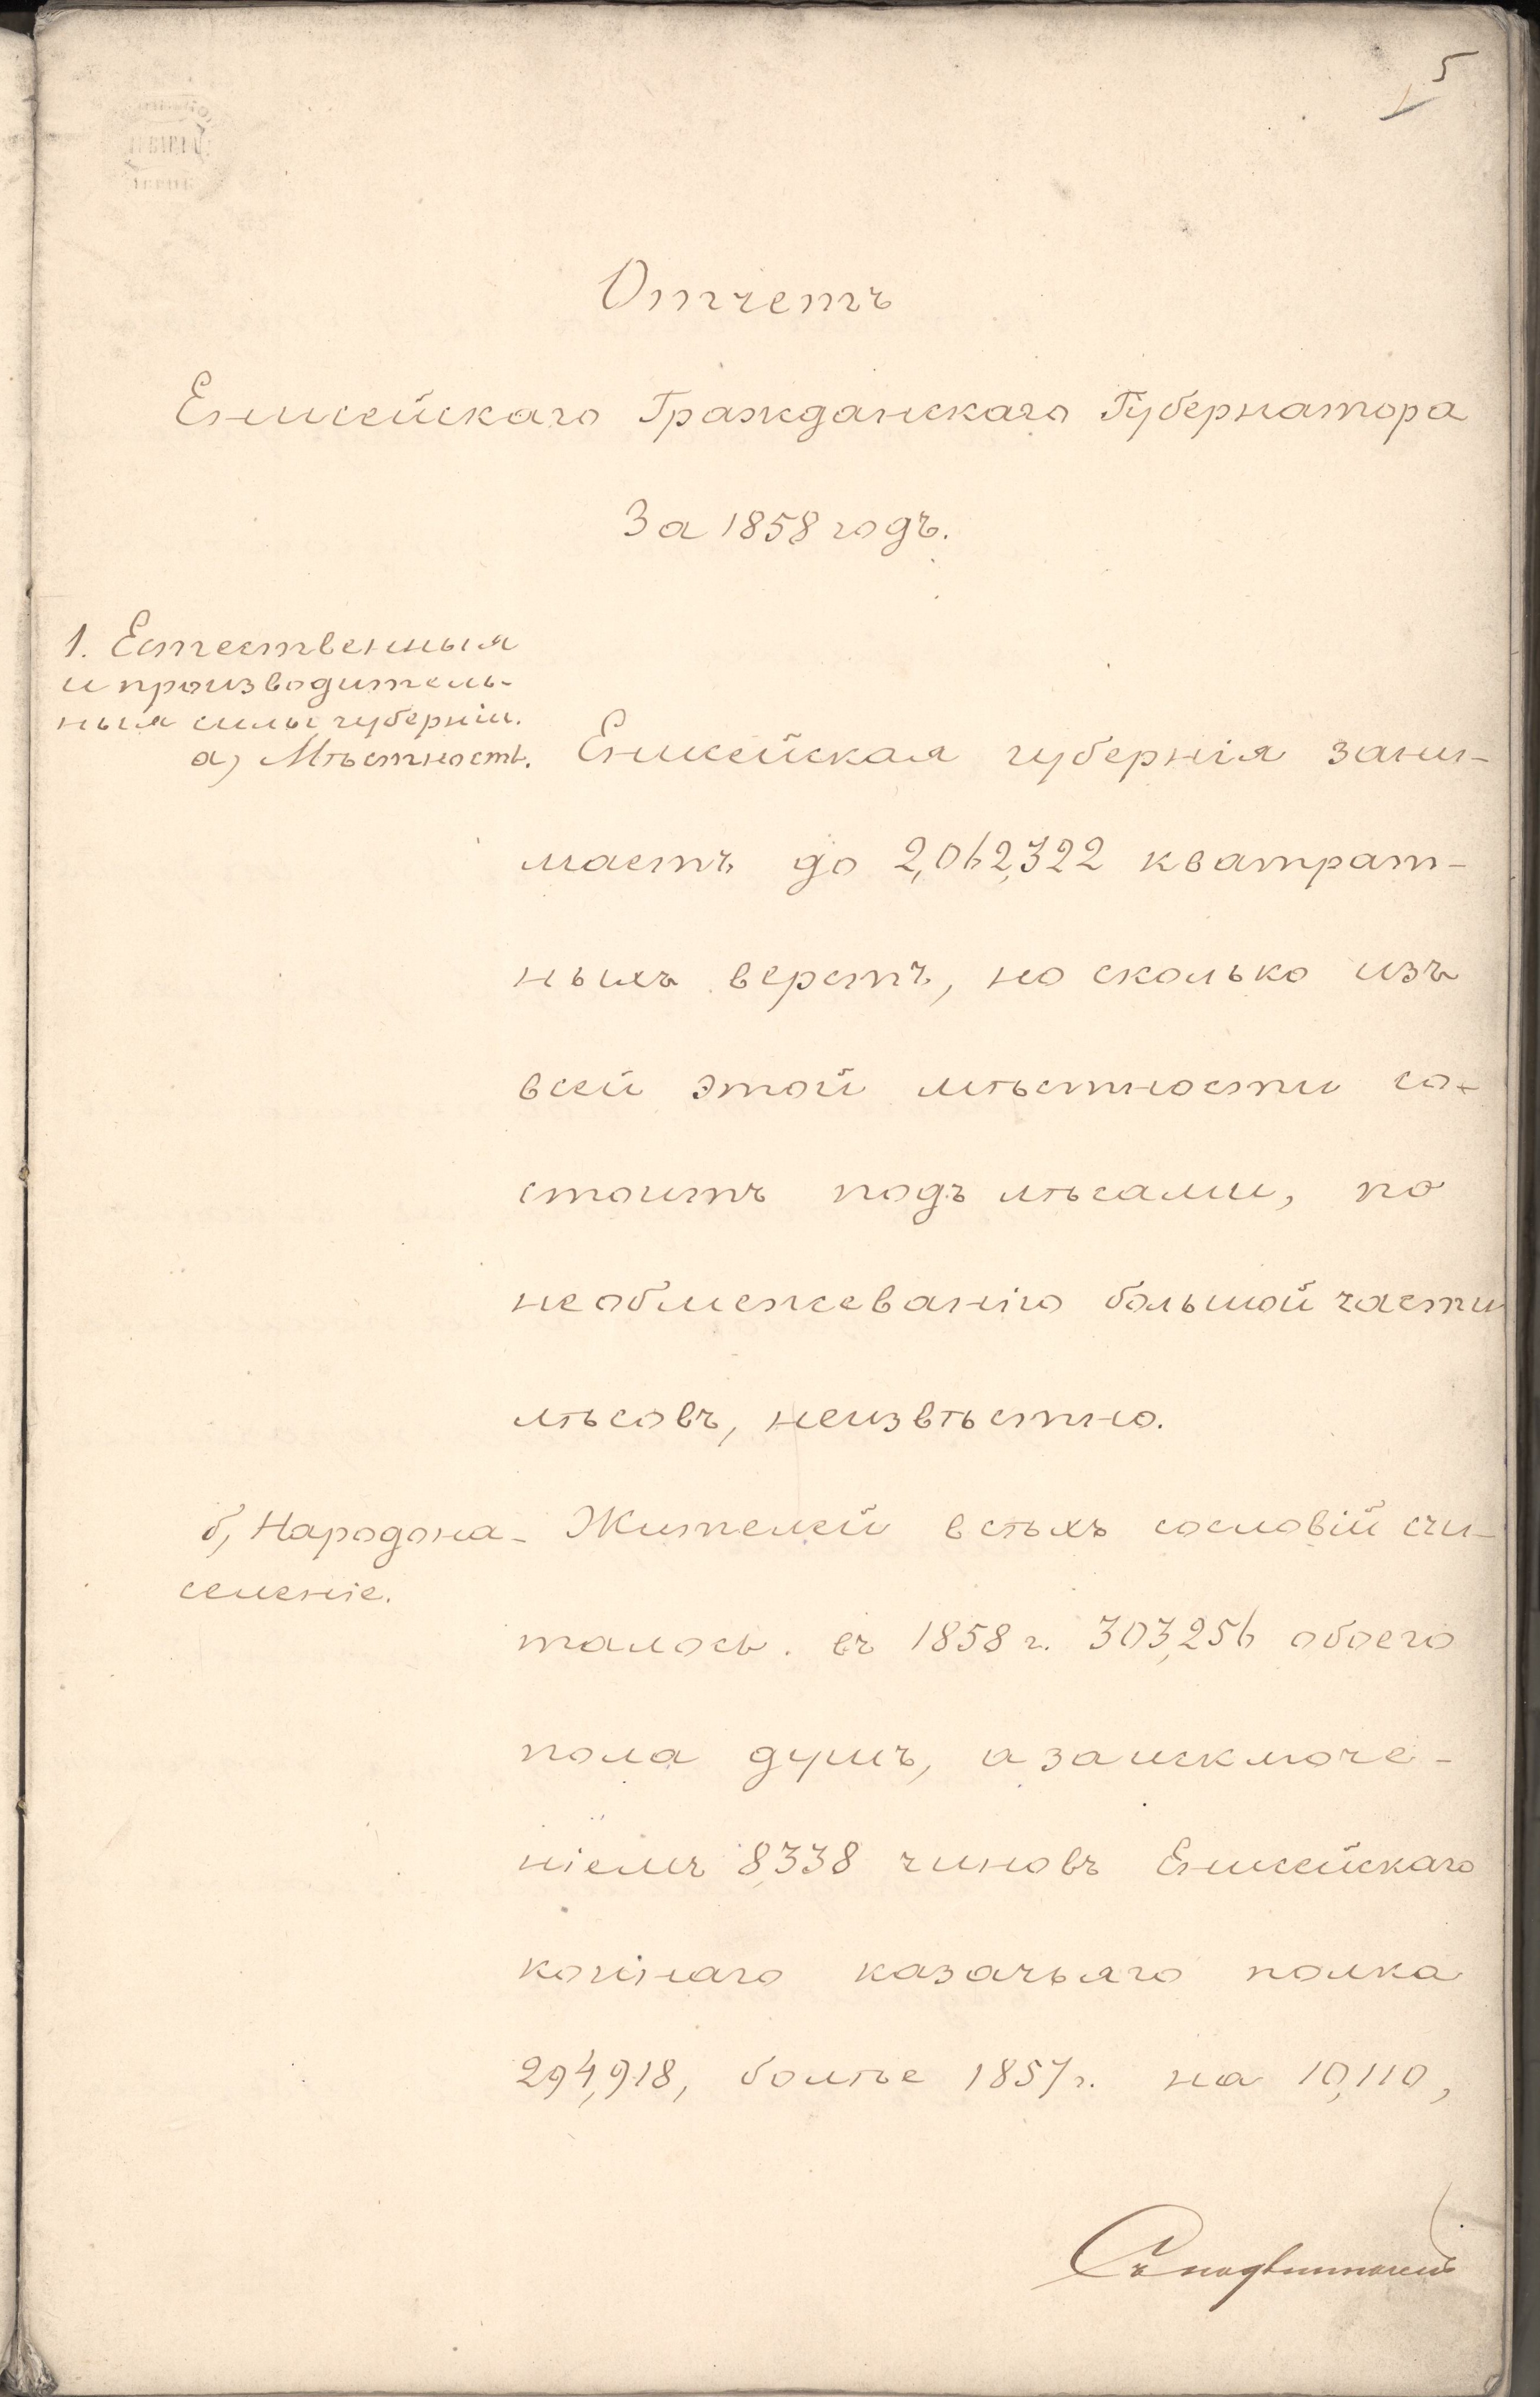 5
Отчетъ
Енисейскаго Гражданскаго Губернатора
За 1858 годъ.
1. Естественныя
и производитель-
ныя силы губерніи.
а) Мѣстность.
Енисейская губернія зани-
маетъ до 2,062,322 кватрат-
ныхъ верстъ, но сколько изъ
всей этой мѣстности со-
стоитъ подъ лѣсами, по
необмежеванію большой части
лѣсовъ, неизвѣстно.
б) Народона-
селеніе.
Жителей всѣхъ сословій счи-
талось въ 1858 г. 303,256 обоего
пола душъ, а за исключе-
ніемъ 8,338 чиновъ Енисейскаго
коннаго казачьяго полка
294,918, болѣе 1857 г. на 10,110,
Съ подлиннымъ